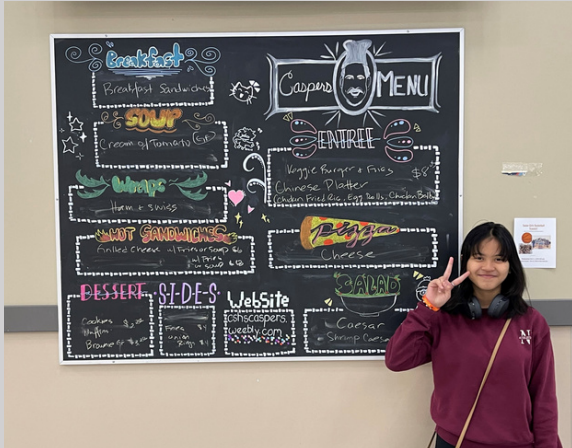 Breakfast
Breakfast Sandwiches
SOUP
Cream of Tomato
Wraps
Ham & Swiss
HOT SANDWICHES
Grilled Cheese
DESSERT
Cookies
Muffin
SIDES
Fries $4
Website
cshscaspers.
weebly.com
Caspers MENU
ENTREE
Veggie Burger & Fries $8
Chinese Platter
(Chicken Fried Rice, Egg Rolls, Chicken Balls)
Pizza
Cheese
SALAD
Caesar
Shrimp Caesar
N